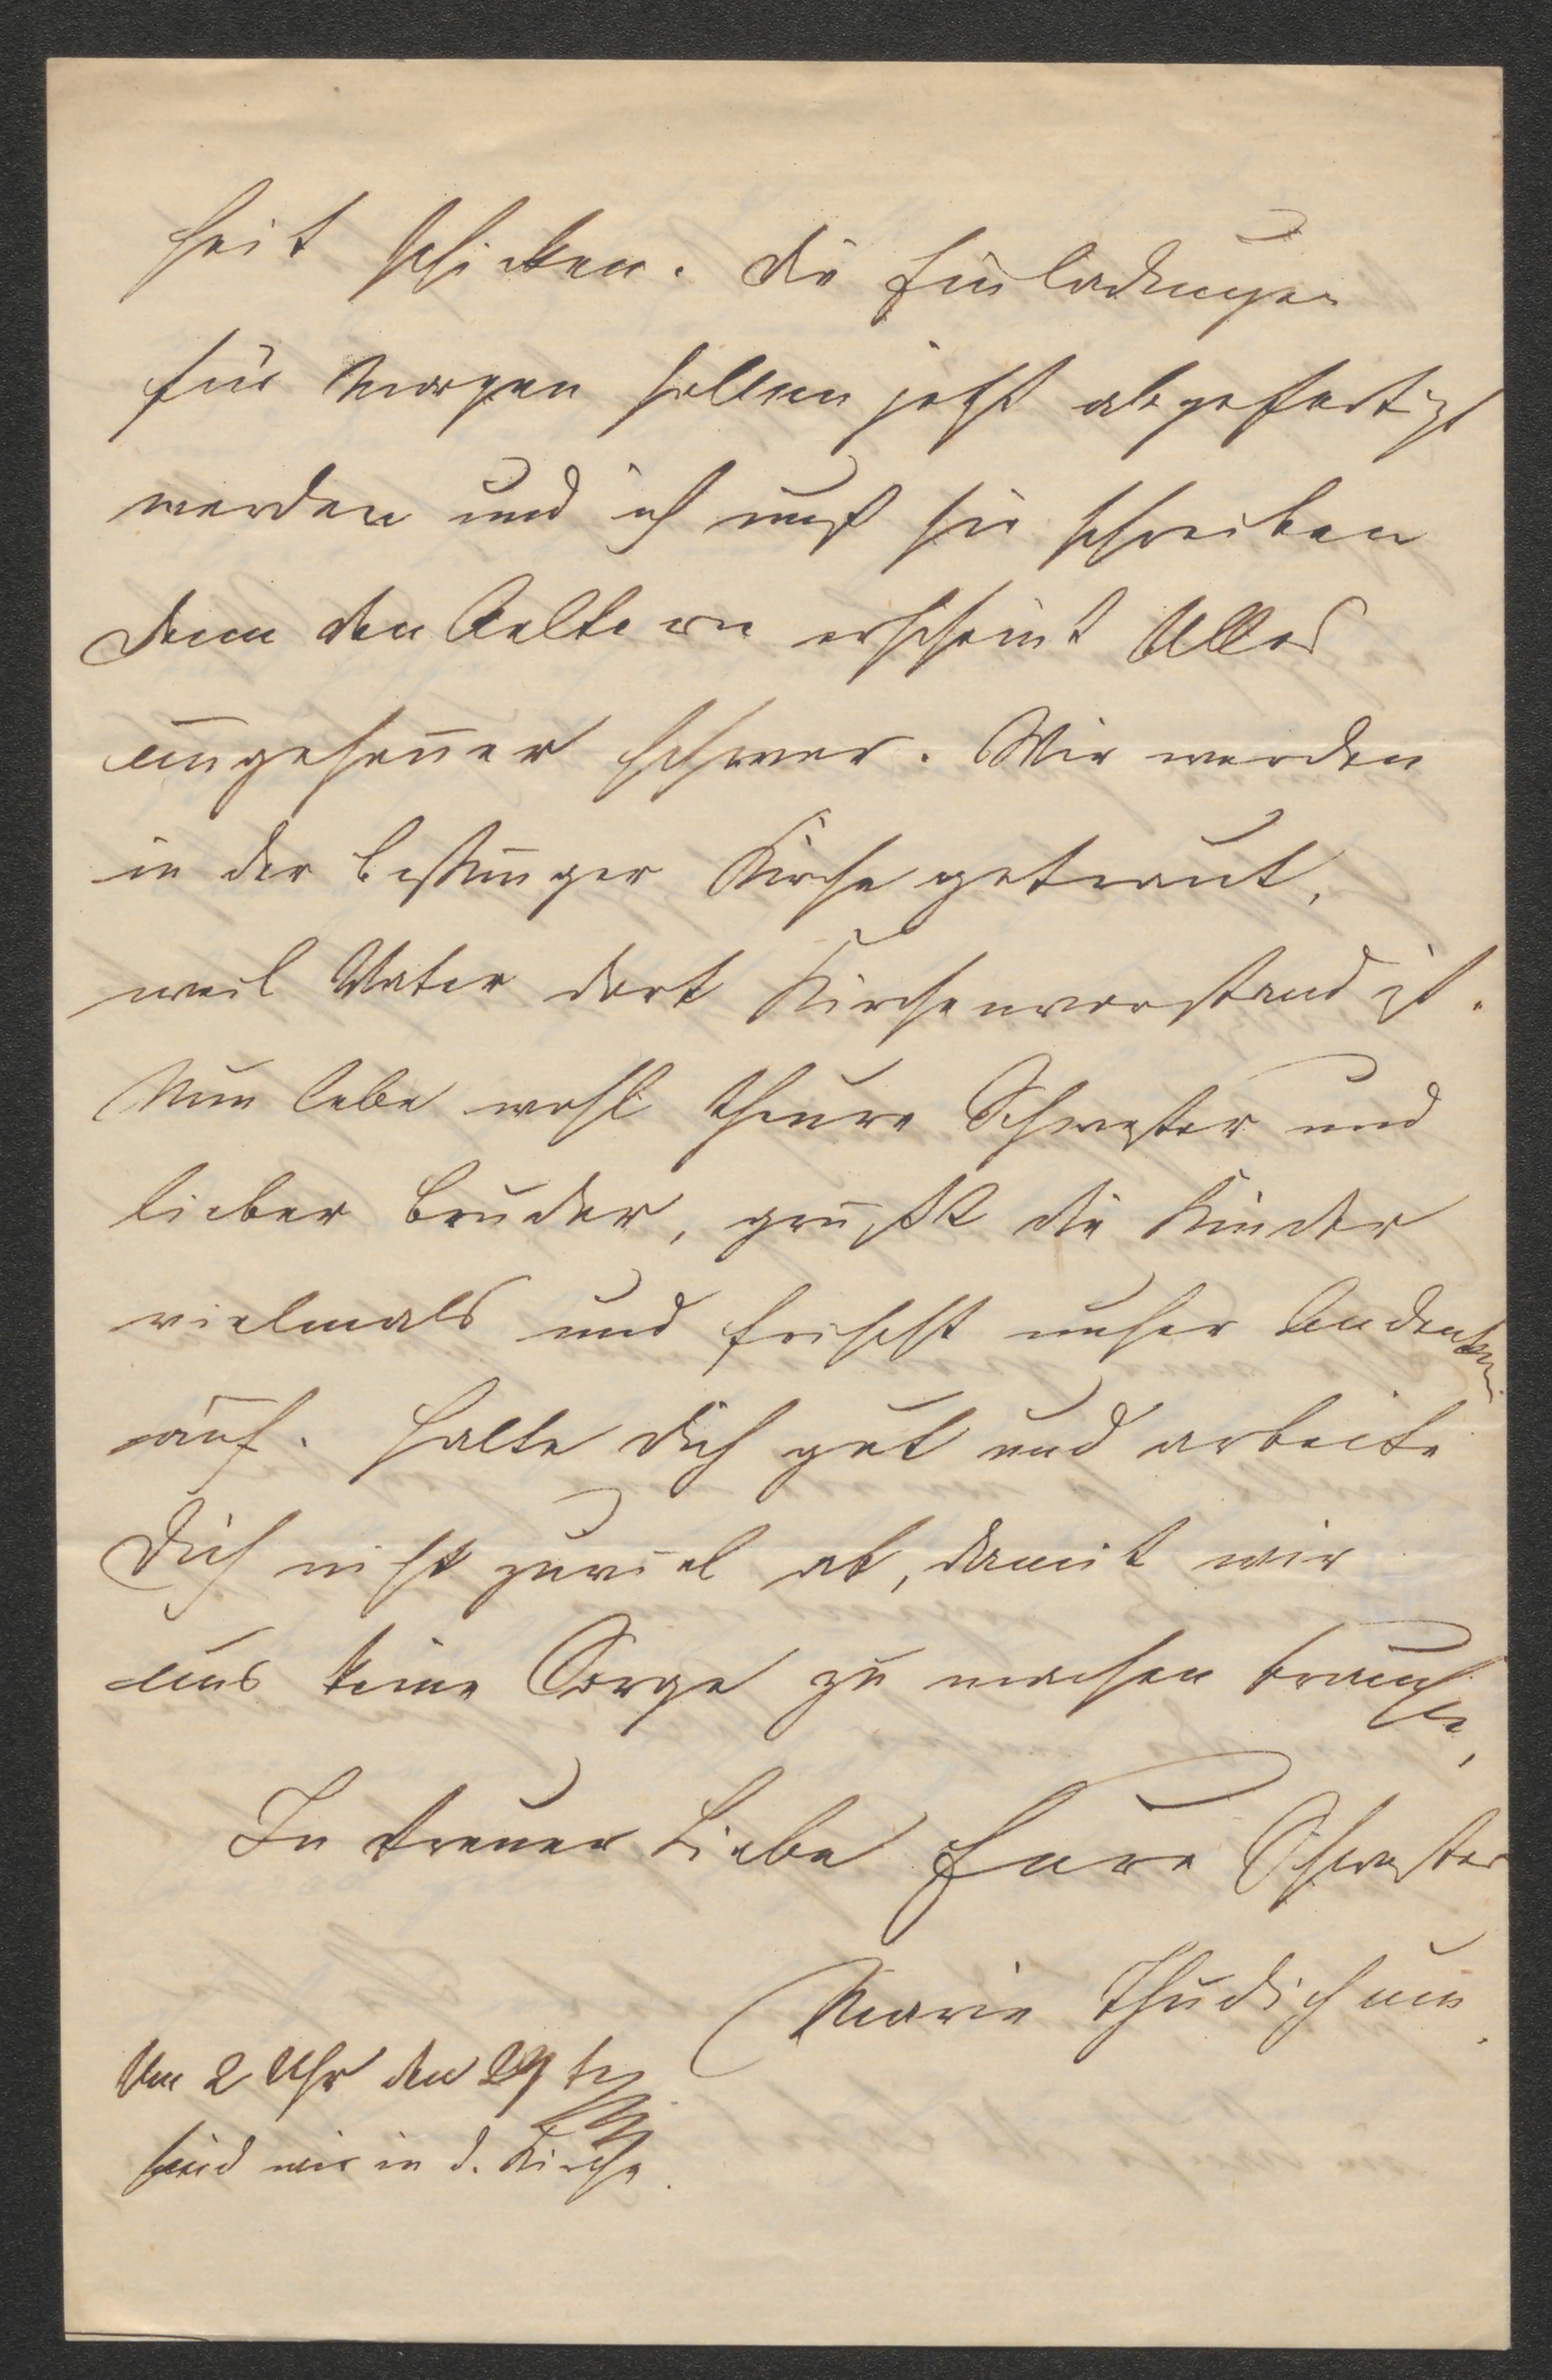 heit schicken. Die Einladungen
für Morgen sollen jetzt abgefertigt
werden und ich muß sie schreiben
denn den Aeltern erscheint Alles
ungeheuer schwer. Wir werden
in der Bessunger Kirche getraut,
weil Vater dort Kirchenvorstand ist.
Nun lebe wohl theure Schwester und
lieber Bruder, grüßt die Kinder
vielmals und frischt unser Andenken
auf. Halte dich gut und arbeite
Dich nicht zuviel ab, damit wir
uns keine Sorge zu machen brauchen,
In treuer Liebe Eure Schwester
Marie Thudichum.
Um 2 Uhr den 29ten
sind wir in d. Kirche.